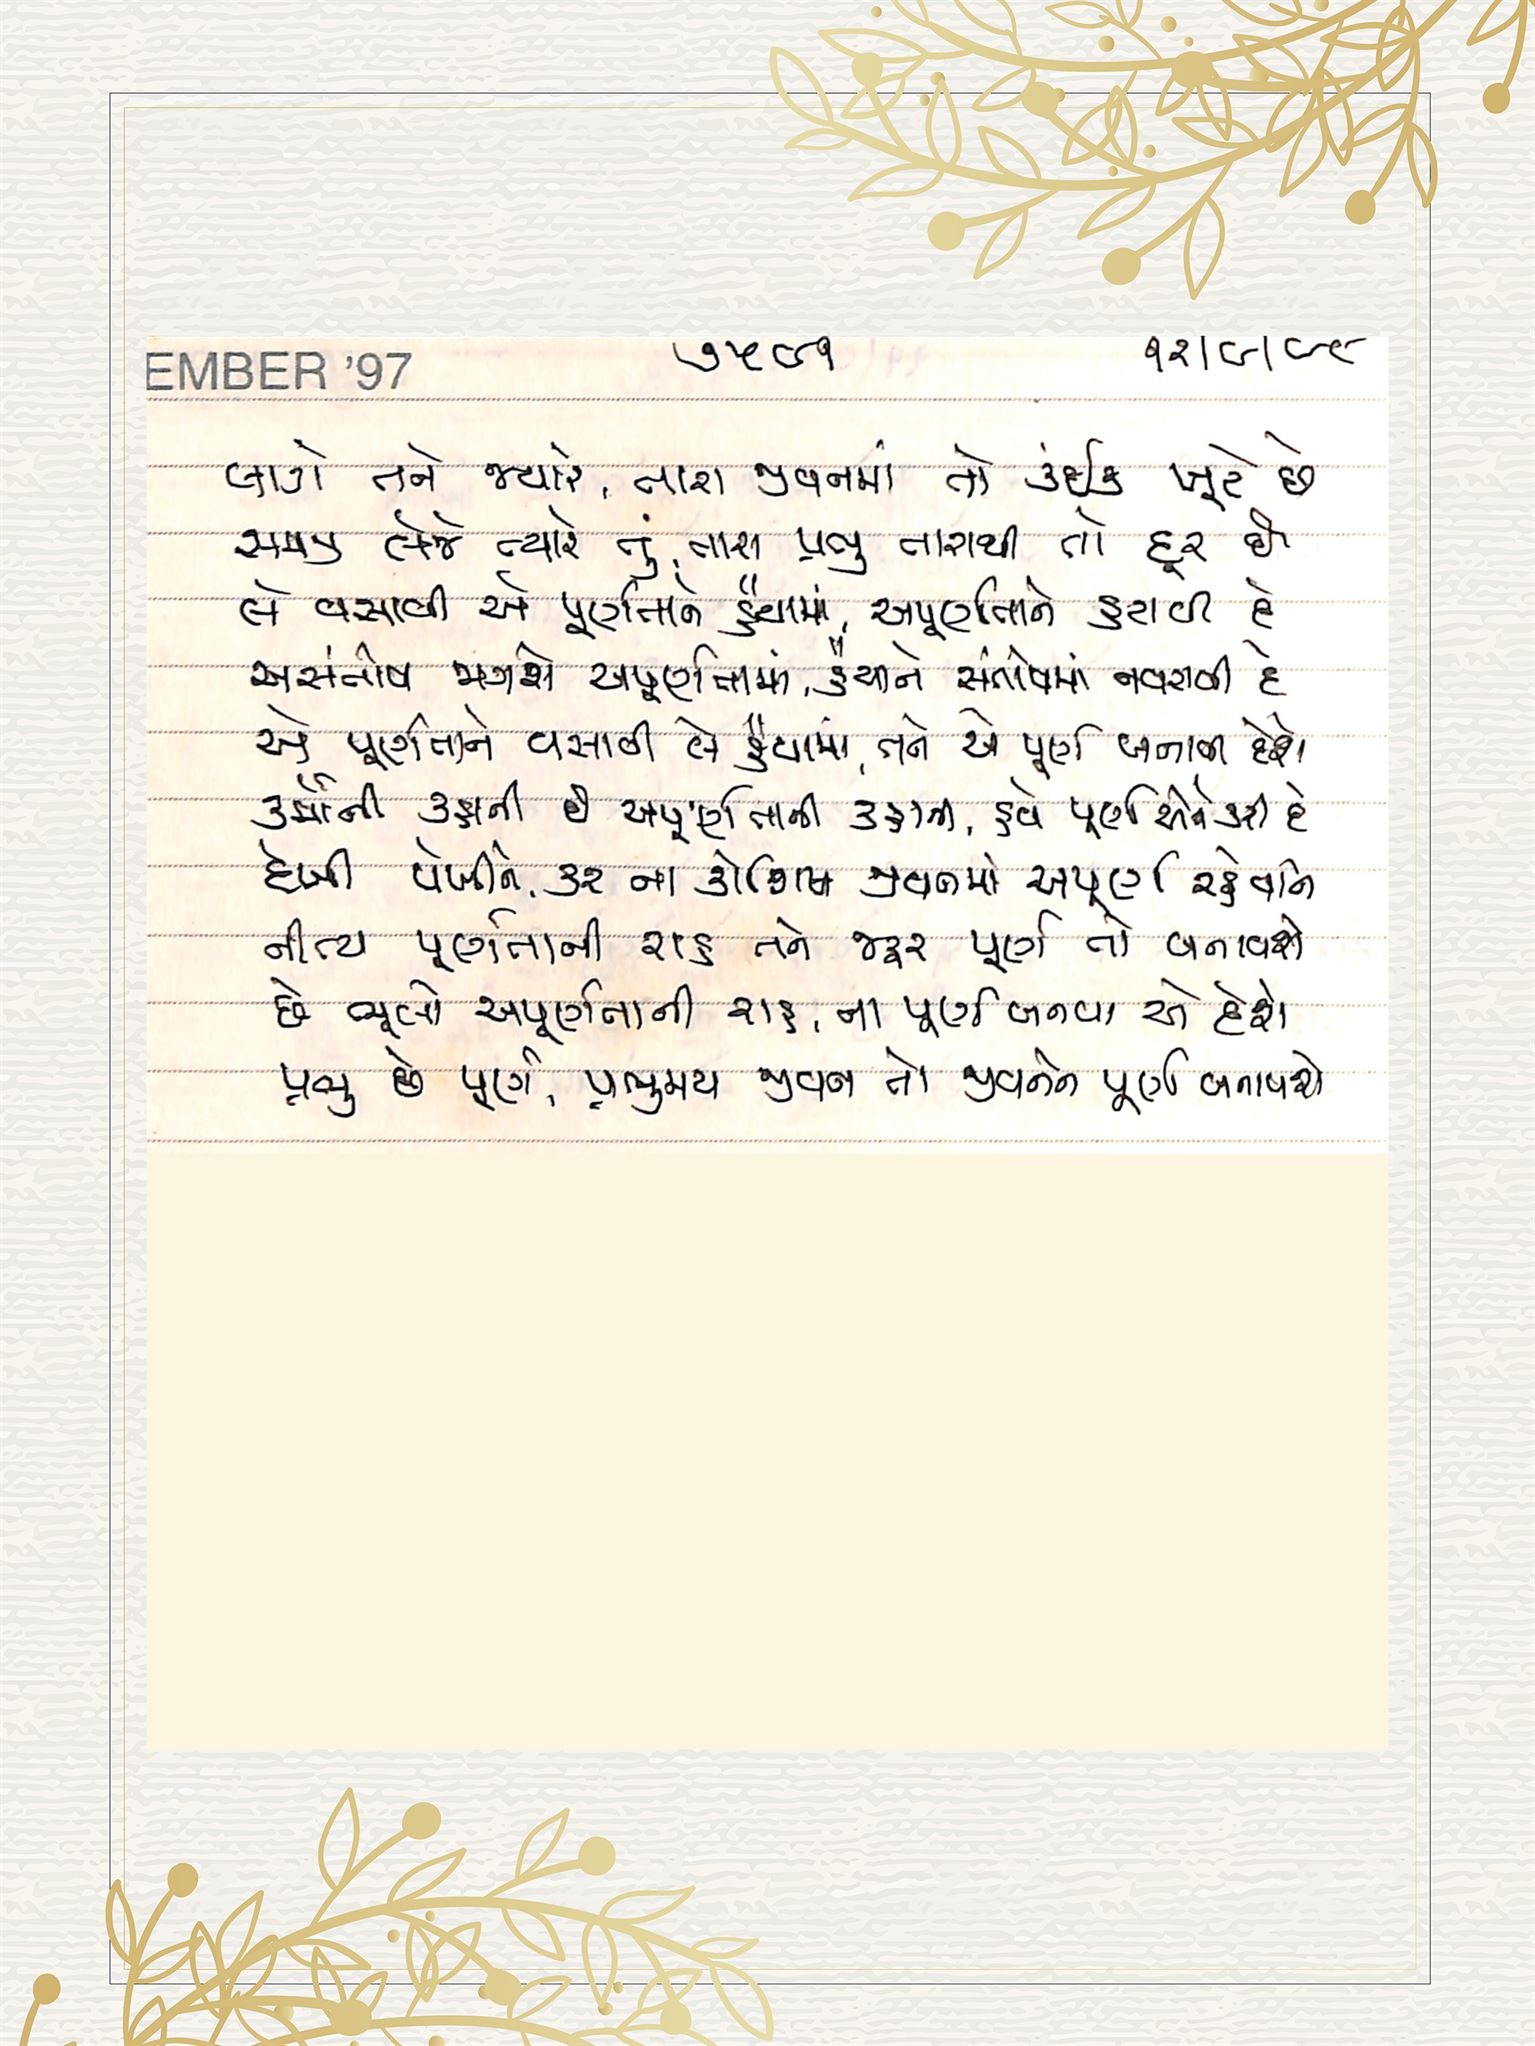 EMBER '97 ૭૫૯૧ ૧૨/૯/૯૮
લાગે તને જ્યારે, તારા જીવનમાં તો કંઈક ખૂટે છે
સમજી લેજે ત્યારે તું, તારા પ્રભુ તારાથી તો દૂર છે
લે વસાવી એ પૂર્ણતાને હૈયામાં, અપૂર્ણતાને હટાવી દે
અસંતોષ જાગશે અપૂર્ણતામાં, હૈયાને સંતોષમાં નવરાવી દે
એ પૂર્ણતાને વસાવી લે હૈયામાં, તને એ પૂર્ણ બનાવી દેશે
કર્મોની કહાની છે અપૂર્ણતાની કહાની, હવે પૂર્ણ એને કરી દે
દેખી પેખીને, કર ના કોશિશ જીવનમાં અપૂર્ણ રહેવાને
નીત્ય પૂર્ણતાની રાહ તને જરૂર પૂર્ણ તો બનાવશે
છે ભૂલો અપૂર્ણતાની રાહ, ના પૂર્ણ બનવા એ દેશે
પ્રભુ છે પૂર્ણ, પ્રભુમય જીવન તો જીવનને પૂર્ણ બનાવશે